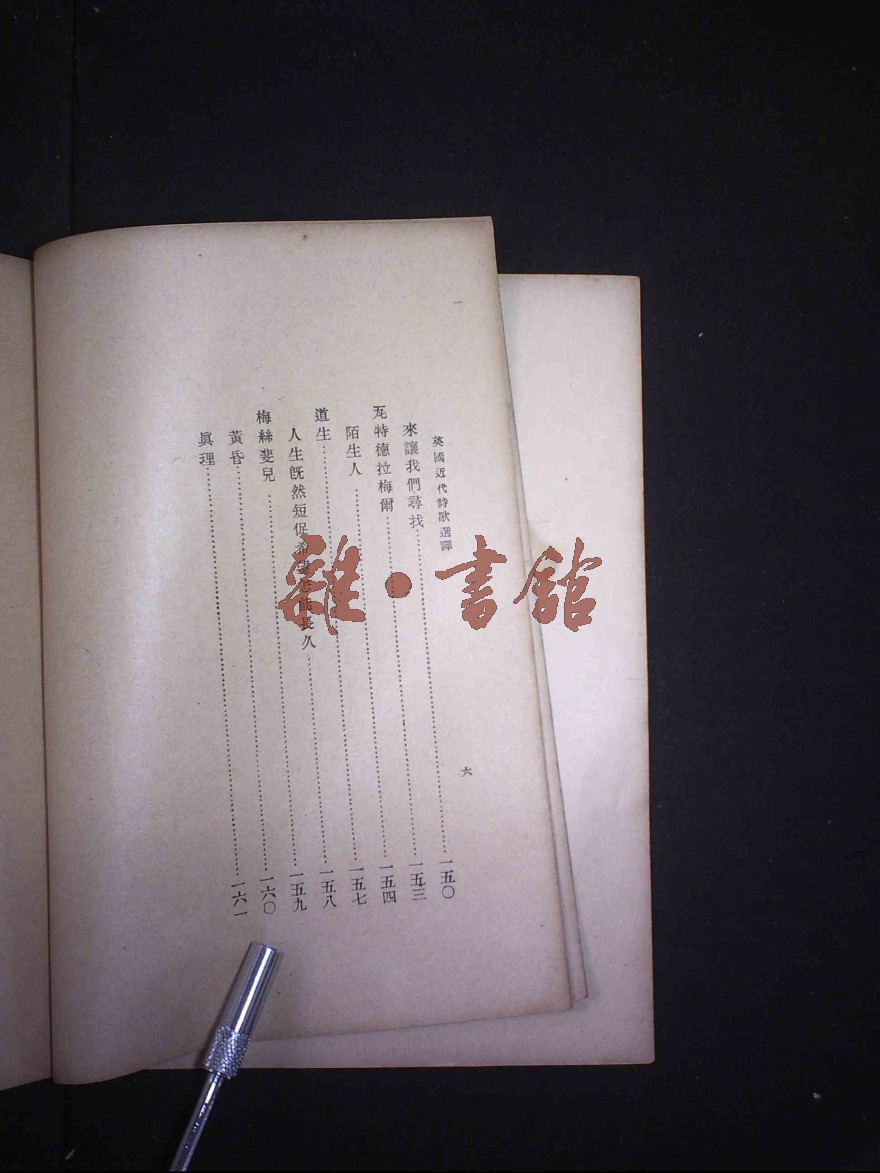 英國近代詩歌選譯 六
來讓我們尋找 一五〇
瓦特德拉梅爾 一五三
陌生人 一五四
道生 一五七
人生旣然短促希能長久 一五八
梅絲斐兒 一五九
黃昏 一六〇
眞理 一六一
雜•書館